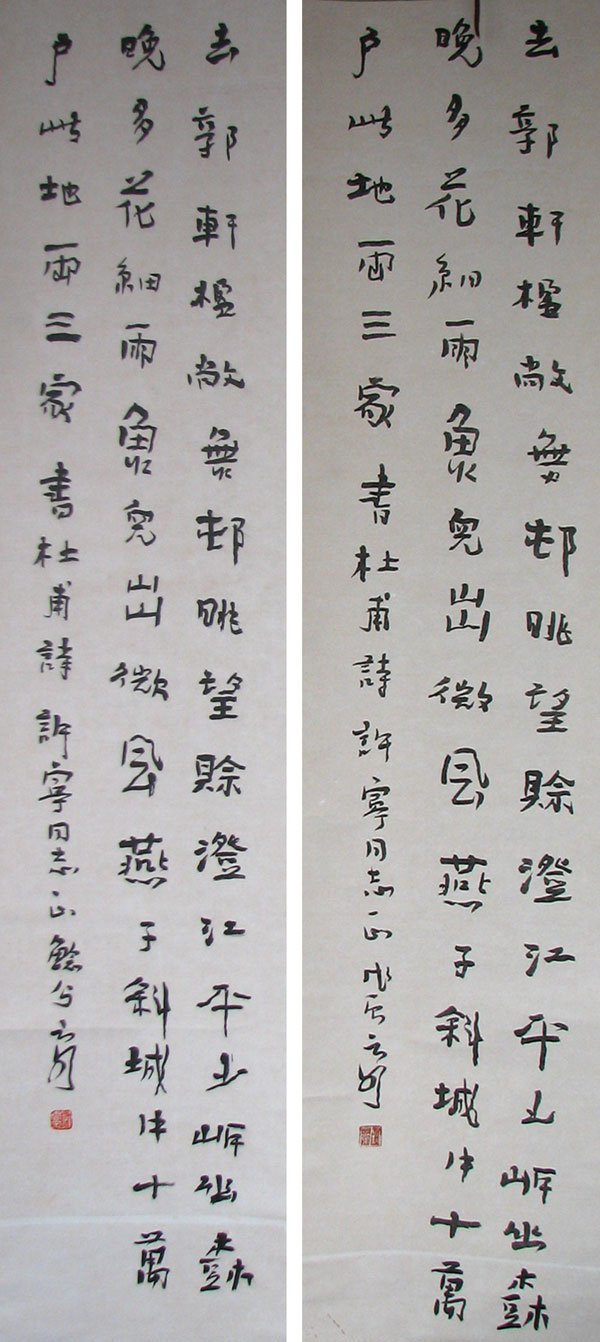 去郭軒楹敞無邨眺望賒澄江平少岸幽樹
晚多花細雨魚兒出微風燕子斜城中十萬
戶此地兩三家 書杜甫詩 許寧同志正
去郭軒楹敞無邨眺望賒澄江平少岸幽樹
晚多花細雨魚兒出微風燕子斜城中十萬
戶此地兩三家 書杜甫詩 許寧同志正